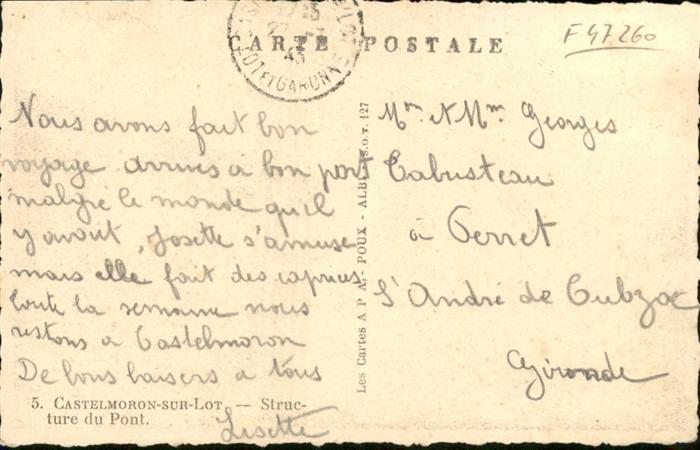 CARTE POSTALE
F 47260
LOT ET GARONNE
Nous avons fait bon
voyage arrivés à bon port
malgré le monde qu'il
y avait, Josette s'amuse
mais elle fait des caprices
toute la semaine nous
restons a Castelmoron
De bons baisers a tous
Lisette
5. CASTELMORON-SUR-LOT. — Struc-
ture du Pont.
Les Cartes A P A - POUX - ALBI S.O.T. 127
Mr et Mme Georges
Cabusteau
à Perret
St André de Cubzac
Gironde